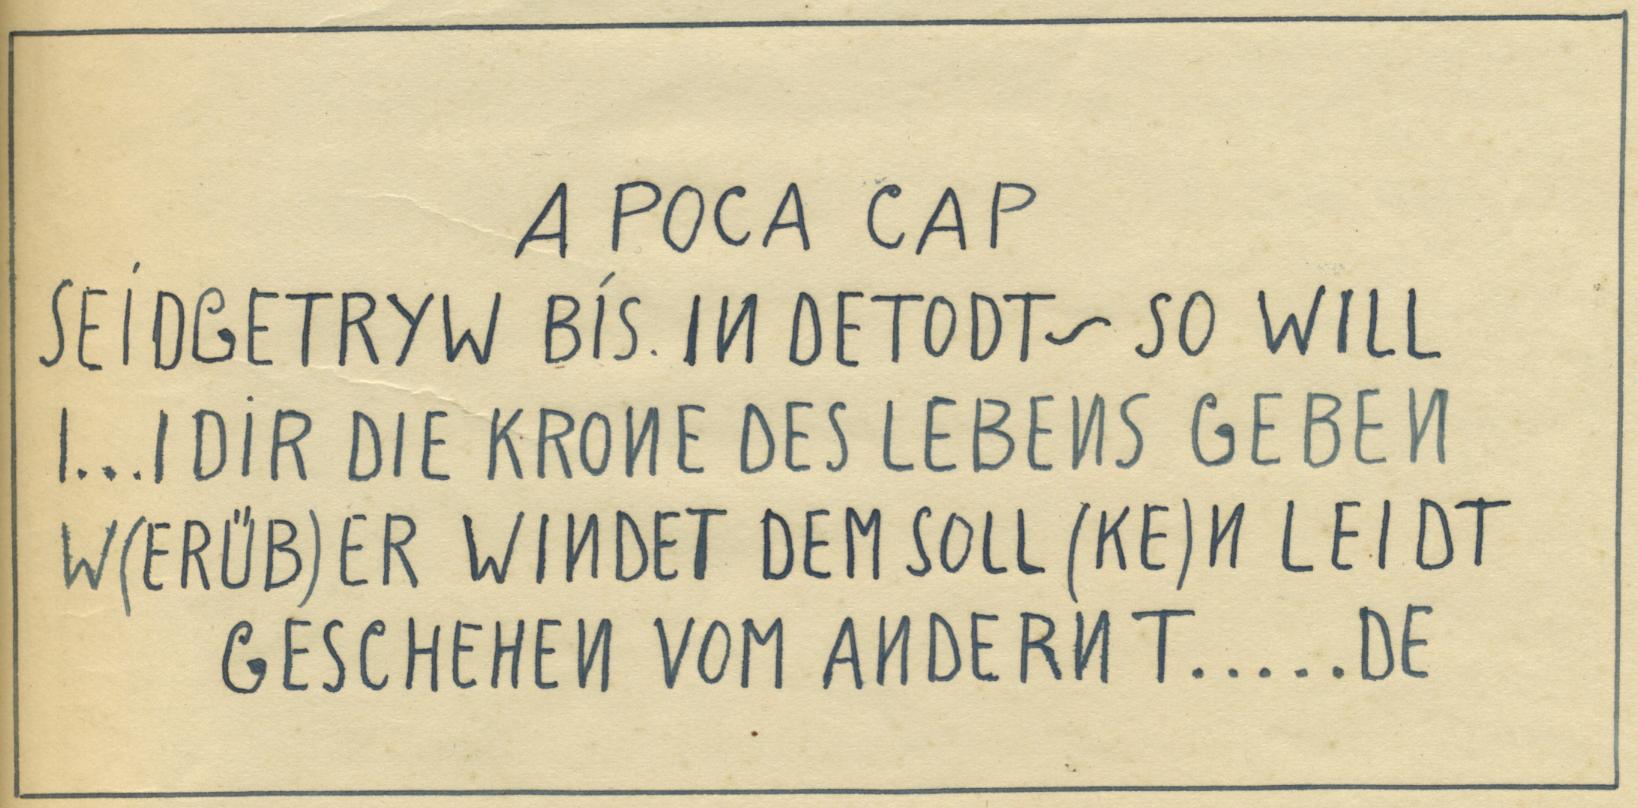 A POCA CAP
SEÍDGETRYW BÍS. IN DETODT~ SO WILL
I...I DIR DIE KRONE DES LEBENS GEBEN
W(ERÜB)ER WINDET DEM SOLL (KE)N LEIDT
GESCHEHEN VOM ANDERN T.....DE